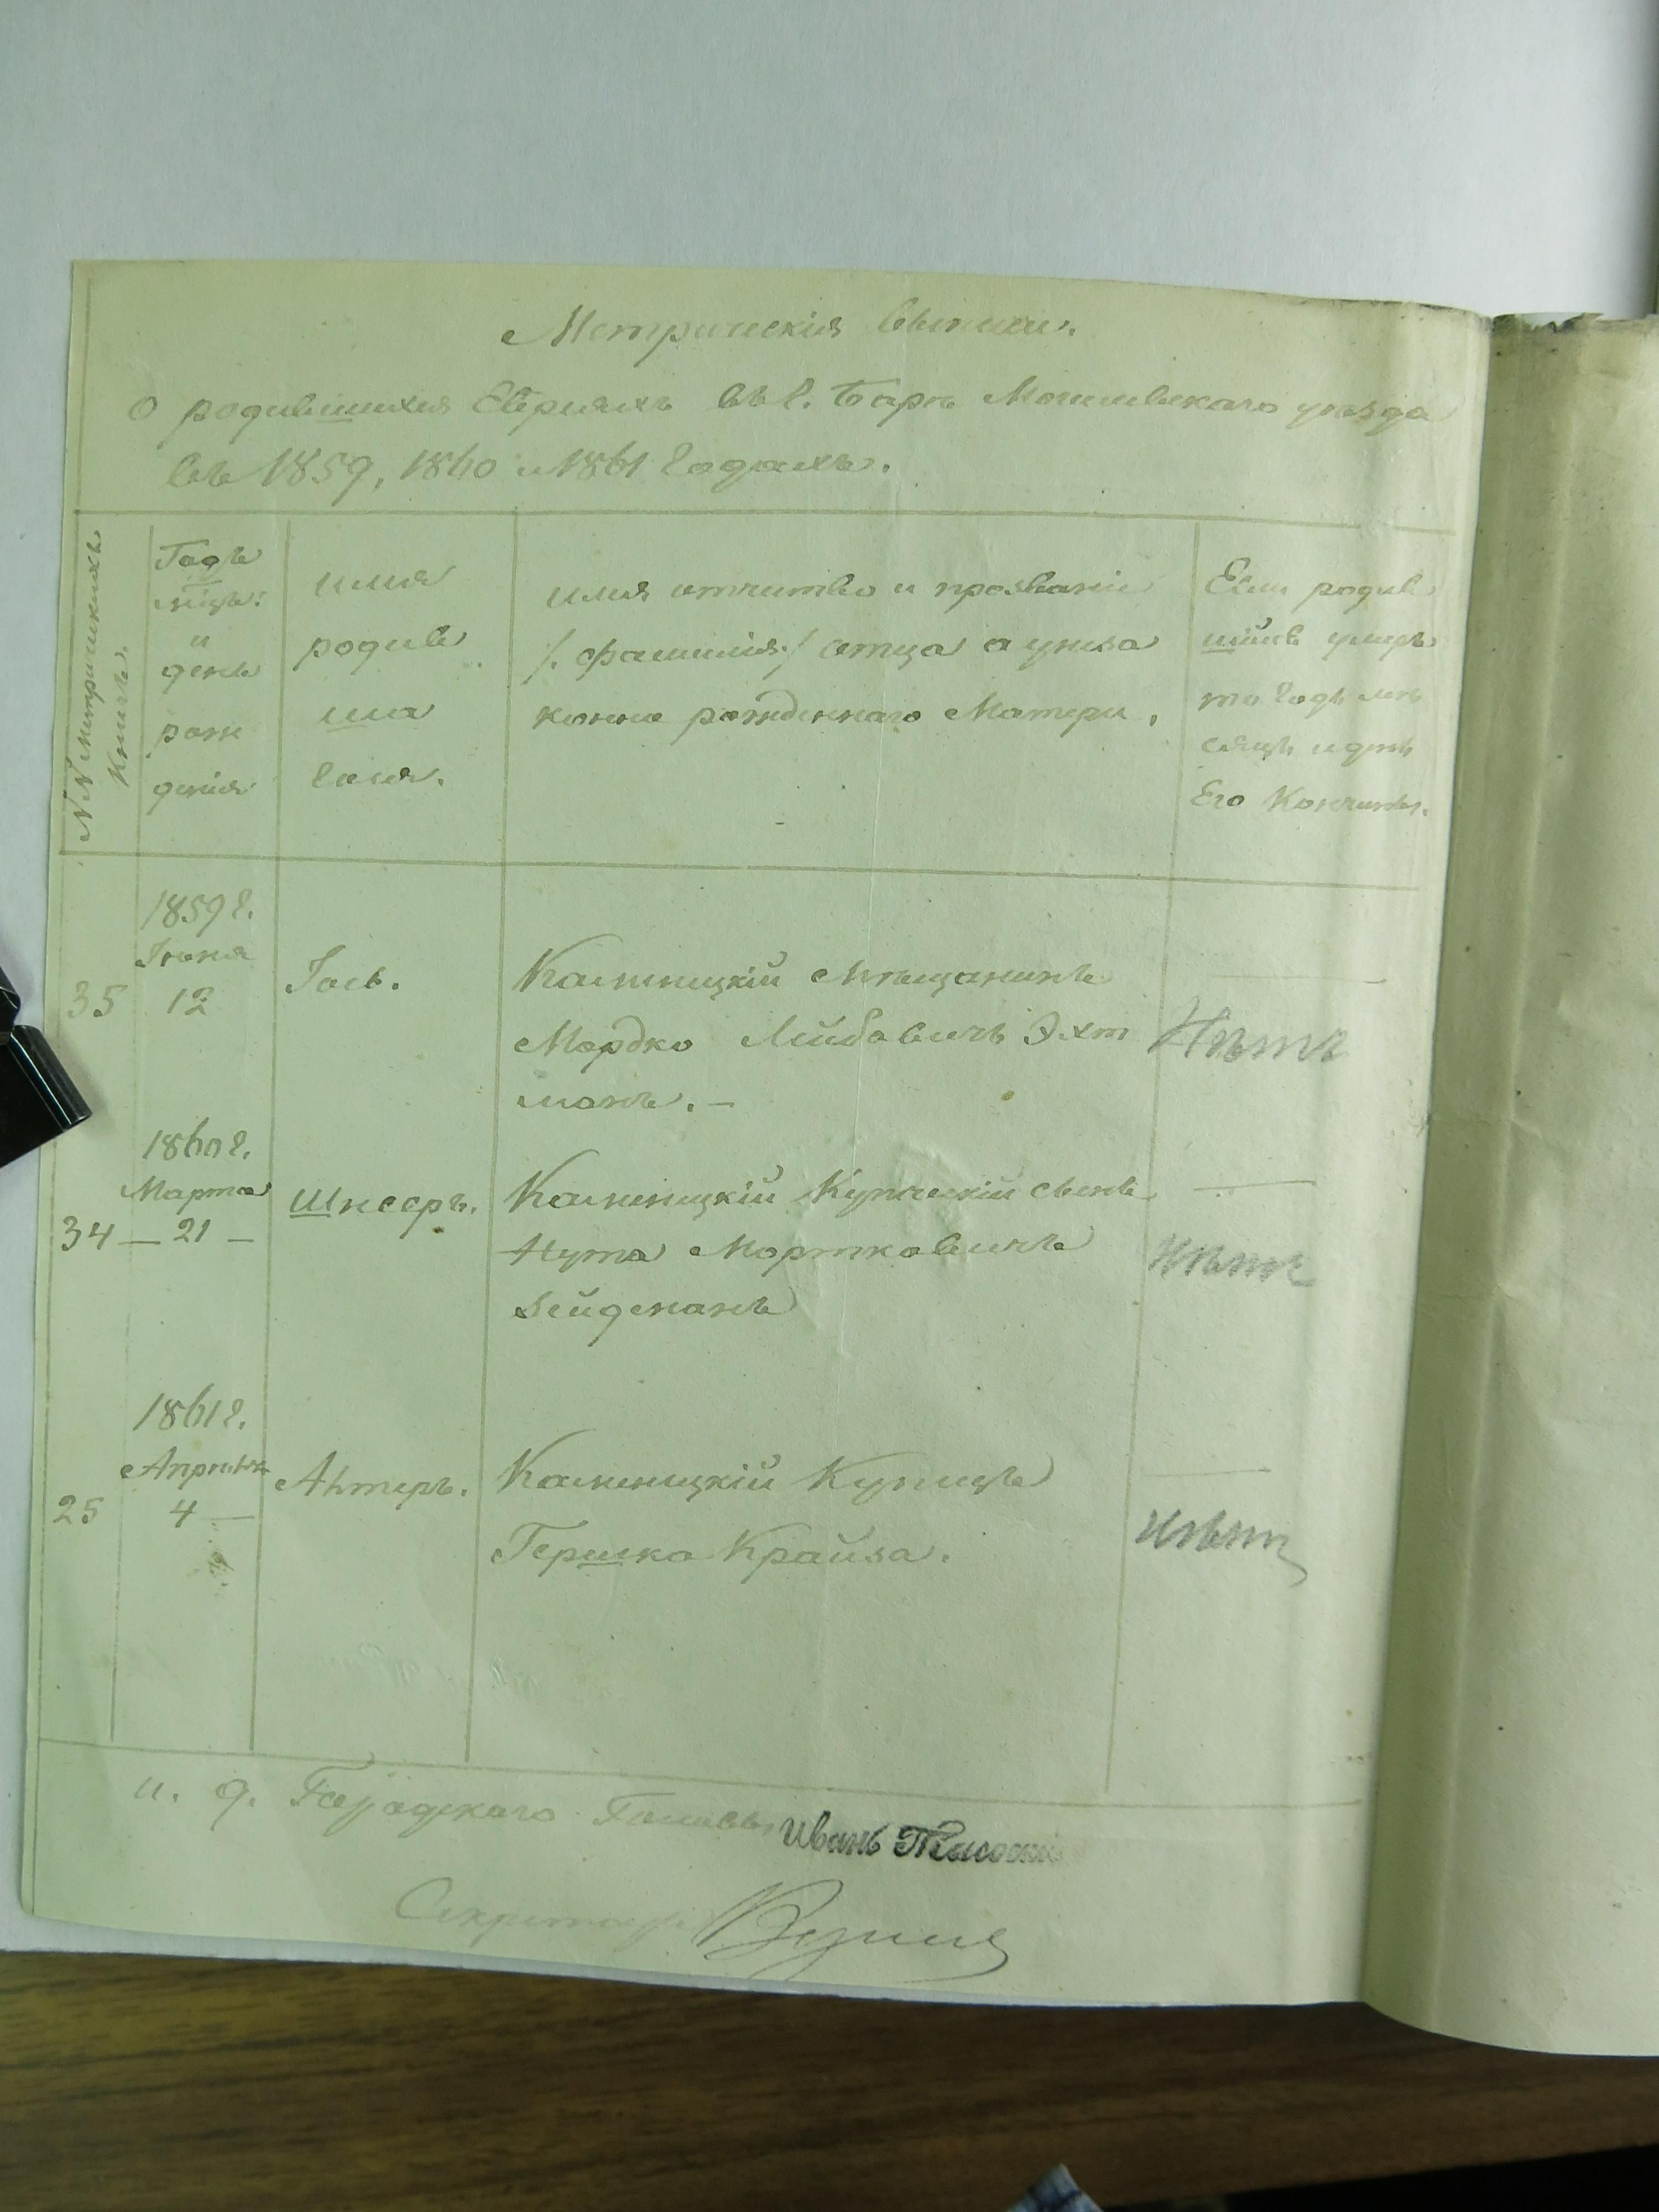 Метрическія выписи.
О родившихся Евреяхъ въ г. Баръ Могилевскаго уѣзда
въ 1859, 1860 и 1861 годахъ.
№№ метрическихъ
книгъ.
Годъ
мѣцъ:
и
день
рож
денія
имя
родив
ша
гося.
имя отчитво и прозваніе
/. фамилія ./ отца а униза
конно рожденнаго Матери.
Если родив
шійся умеръ
то годъ мѣ
сяцъ и день
Его Кончины.
35
1859 г.
Іюня
12
Іось.
Каменецкій Мѣщанинъ
Мордко Лейбовичъ Эхт
манъ. —
Нѣтъ
34 —
1860 г.
Марта
21 —
Шнееръ.
Каменецкій Купеческій сынъ
Нута Мортковичъ
Зейденанъ
Нѣтъ
25
1861 г.
Апрѣля
4 —
Антеръ.
Каменецкій Купецъ
Гершко Крайза.
Нѣтъ
и. д. Городскаго Головы Иванъ
Секретарь